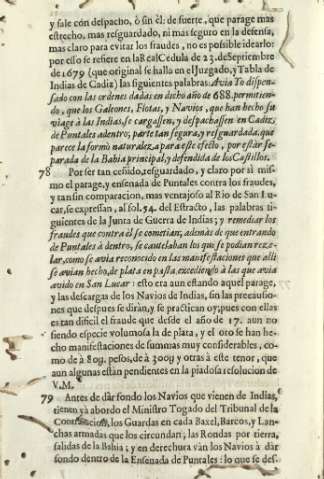 y sale con despacho, ò sin èl: de suerte, que parage mas
estrecho, mas resguardado, ni mas seguro en la defensa,
mas claro para evitar los fraudes, no es possible idearlo:
por esso se refiere en la Real Cedula de 23. de Septiembre
de 1679 (que original se hallo en el Juzgado, y Tabla de
Indias de Cadiz) las siguientes palabras: Avia To dispen-
sado con las ordenes dadas en dicho año de 688. permitien-
do, que los Galeones, Flotas, y Navios, que han hecho su
viage à las Indias, se cargassen, y despachassen en Cadiz,
de Puntales adentro, parte tan segura, y resguardada, que
parece la formò naturaleza para este efecto, por estàr se-
parada de la Bahia principal, y defendida de los Castillos.
78 Por ser tan ceñido, resguardado, y claro por sì mis-
mo el parage, y ensenada de Puntales contra los fraudes,
y tan sin comparacion, mas ventajoso al Rio de San Lu-
car, se expressan, al fol. 54. del Estracto, las palabras si-
guientes de la Junta de Guerra de Indias; y remediar los
fraudes que contra èl se cometian; ademàs de que entrando
de Puntales à dentro, se cautelaban los que se podian reze-
lar, como se avia reconocido en las manifestaciones que alli
se avian hecho, de plata en pasta, excediendo à las que avia
avido en San Lucar: esto era aun estando aquel parage,
y las descargas de los Navios de Indias, sin las precaucio-
nes que despues se diràn, y se practican oy; pues con ellas
es tan dificil el fraude que desde el año de 17. aun no
siendo especie volumosa la de plata, y el oro se han he-
cho manifestaciones de summas muy considerables, co-
mo de à 80y. pesos, de à 300y y otras à este tenor, que
aun algunas estàn pendientes en la piadosa resolucion de
V.M.
79 Antes de dàr fondo los Navios que vienen de Indias,
tienen yà abordo el Ministro Togado del Tribunal de la
Contratacion, los Guardas en cada Baxel, Barcos, y Lan-
chas armadas que los circundan, las Rondas por tierra,
salidas de la Bahia; y en derechura vàn los Navios à dàr
fondo dentro la Ensenada de Puntales: lo que se des-